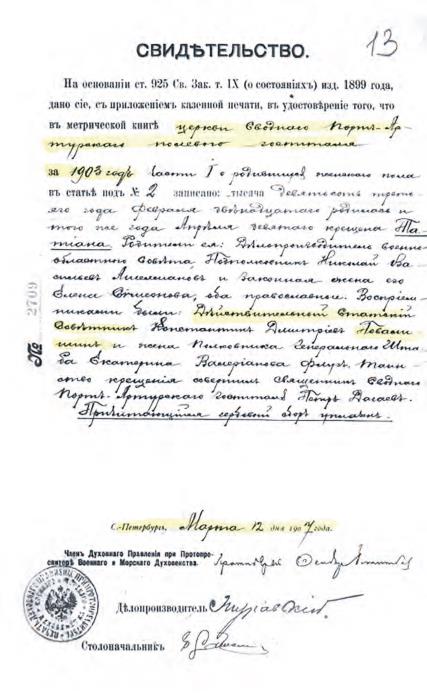 13
СВИДѢТЕЛЬСТВО.
На основаніи ст. 925 Св. Зак. т. IX (о состояніяхъ) изд. 1899 года,
дано сіе, съ приложеніемъ казенной печати, въ удостовѣреніе того, что
въ метрической книгѣ церкви Своднаго Портъ-Ар-
турскаго полевого госпиталя
за 1903 годъ части I о родившихся женскаго пола
въ статьѣ подъ № 2 записано: тысяча девятьсотъ треть-
яго года Февраля двѣнадцатаго родилась и
того же года Апрѣля девятаго крещена Та-
тіана. Родители ея: Дѣлопроизводитель военно-
областного Совѣта Подполковникъ Николай Ва-
сильевъ и законная жена его
Елена оба православные. Воспріем-
никами были: Дѣйствительный Статскій
Совѣтникъ Константинъ Димитріевъ
и жена Полковника Генеральнаго Шта-
ба Екатерина Валеріанова Флугъ. Таин-
ство крещенія совершилъ священникъ Своднаго
Портъ-Артурскаго госпиталя Петръ
Причитающійся гербовый сборъ уплаченъ.
№ 2709
С.-Петербургъ, Марта 12 дня 1907 года.
Членъ Духовнаго Правленія при Протопре-
свитерѣ Военнаго и Морскаго Духовенства. Протоіерей
Дѣлопроизводитель
Столоначальникъ